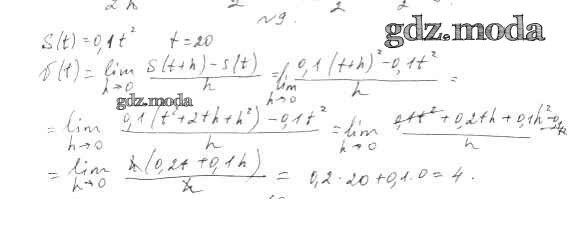 2h 2 2 2
№9.
gdz.moda
S(t)=0,1t² t=20
v(t) = lim h→0 (S(t+h)-S(t))/h = lim h→0 (0,1(t+h)²-0,1t²)/h =
gdz.moda
= lim h→0 (0,1(t²+2th+h²)-0,1t²)/h = lim h→0 (0,1t²+0,2th+0,1h²-0,1t²)/h
= lim h→0 (h(0,2t+0,1h))/h = 0,2·20+0,1·0=4.